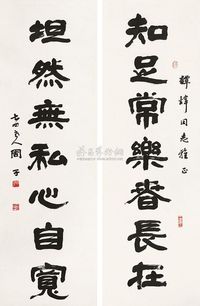 知足常樂春長在
同志雅正
坦然無私心自寬
七四老人周子